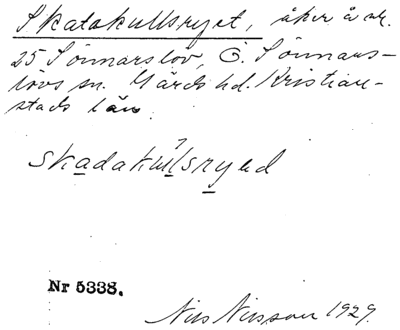 Skatakullsryet, åker å nr.
25 Sönnarslov, Ö. Sönnars-
lövs sn. Gärds hd. Kristian-
stads län.
skadakulsryed
Nr 5338.
Nils Nilsson 1929